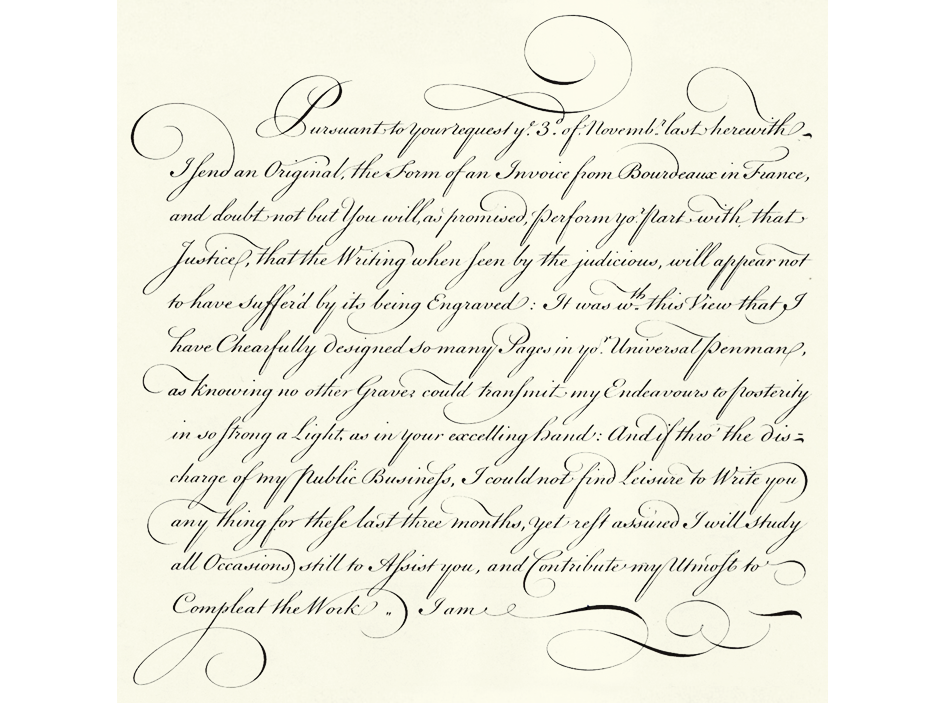 Pursuant to your request yͤ 3ͩ of Novembʳ last herewith
I ſend an Original, the Form of an Invoice from Bourdeaux in France,
and doubt not but You will, as promised, perform yoʳ part with that
Justice, that the Writing when ſeen by the judicious, will appear not
to have Suffer'd by its being Engraved: It was wᵗʰ this View that I
have Chearfully designed so many Pages in yoʳ Universal Penman,
as knowing no other Graver could tranſmit my Endeavours to posterity
in so ſtrong a Light, as in your excelling hand: And if thro' the dis=
charge of my Public Buſineſs, I could not find Leisure to Write you
any thing for theſe last three months, yet reſt assured I will study
all Occasions still to Aſsist you, and Contribute my Utmoſt to
Compleat the Work „ I am